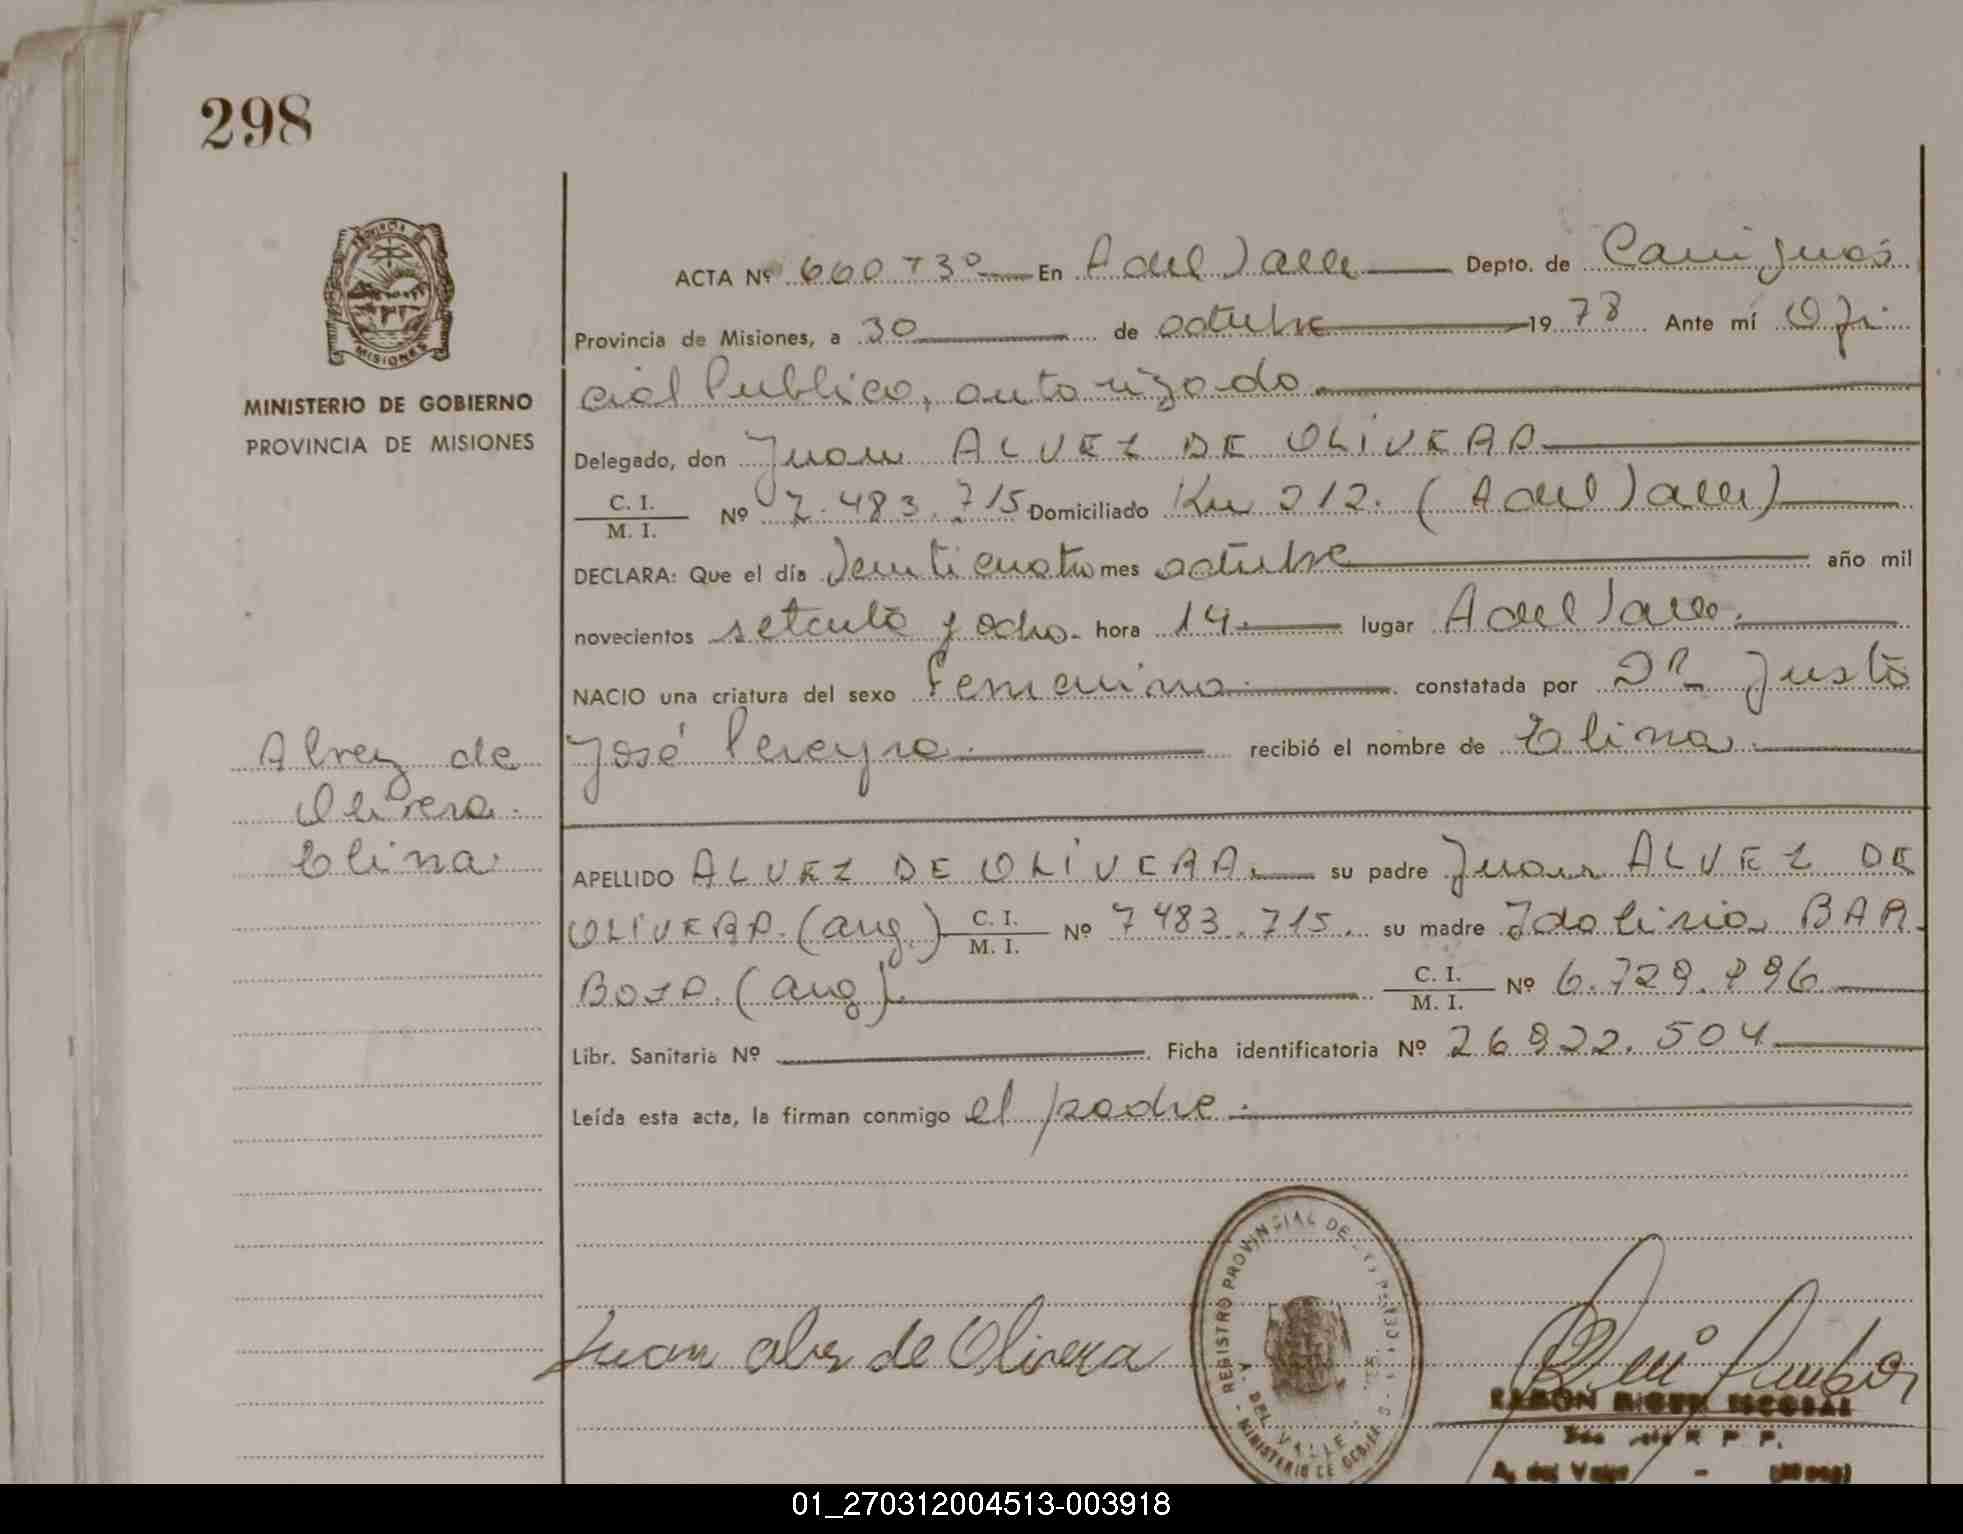 298
PROVINCIA DE
MISIONES
MINISTERIO DE GOBIERNO
PROVINCIA DE MISIONES
ACTA Nº 660 T 3º En A del Valle Depto. de Cainguás
Provincia de Misiones, a 30 de octubre 1978 Ante mí Ofi
cial Publico, autorizado
Delegado, don Juan ALVEZ DE OLIVERA
C. I.
M. I. Nº 7.483.715 Domiciliado Km 212. (A del Valle)
DECLARA: Que el día Veinticuatro mes octubre año mil
novecientos setenta y ocho. hora 14. lugar A del Valle.
NACIO una criatura del sexo femenino. constatada por DR Justo
José Pereyra. recibió el nombre de Elina.
Alvez de
Olivera.
Elina.
APELLIDO ALVEZ DE OLIVERA. su padre Juan ALVEZ DE
OLIVERA. (arg.) C. I.
M. I. Nº 7483.715. su madre Idolina BAR
BOZA. (arg). C. I.
M. I. Nº 6.729.896
Libr. Sanitaria Nº Ficha identificatoria Nº 26.822.504
Leída esta acta, la firman conmigo el padre.
REGISTRO PROVINCIAL DE
A. DEL VALLE
MINISTERIO DE GOBIERNO
Juan alvez de Olivera
RAMON MIGUEL ESCOBAR
R P P.
A. del Valle
01_270312004513-003918